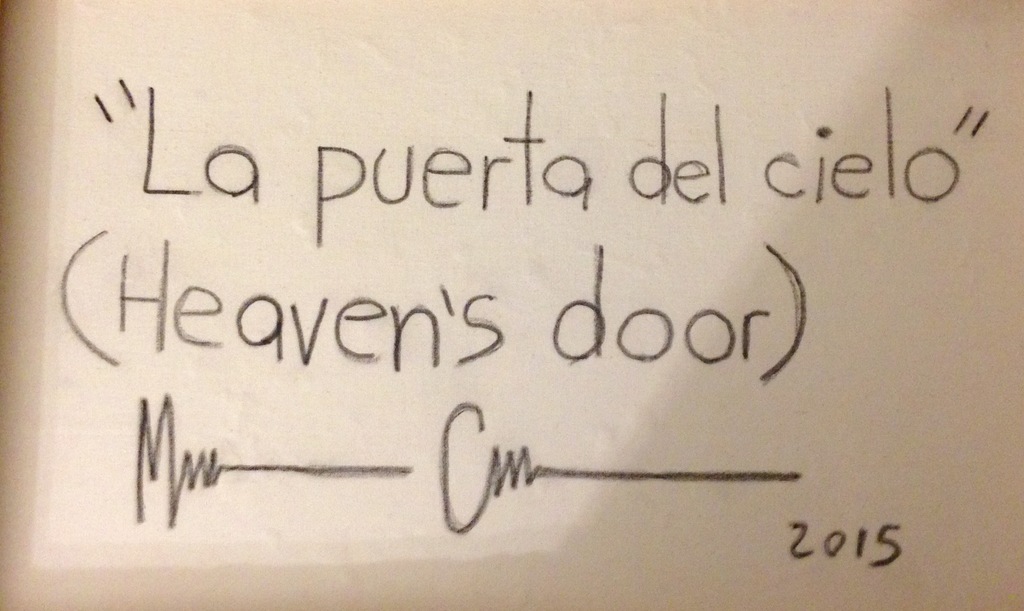 "La puerta del cielo"
(Heaven's door)
2015